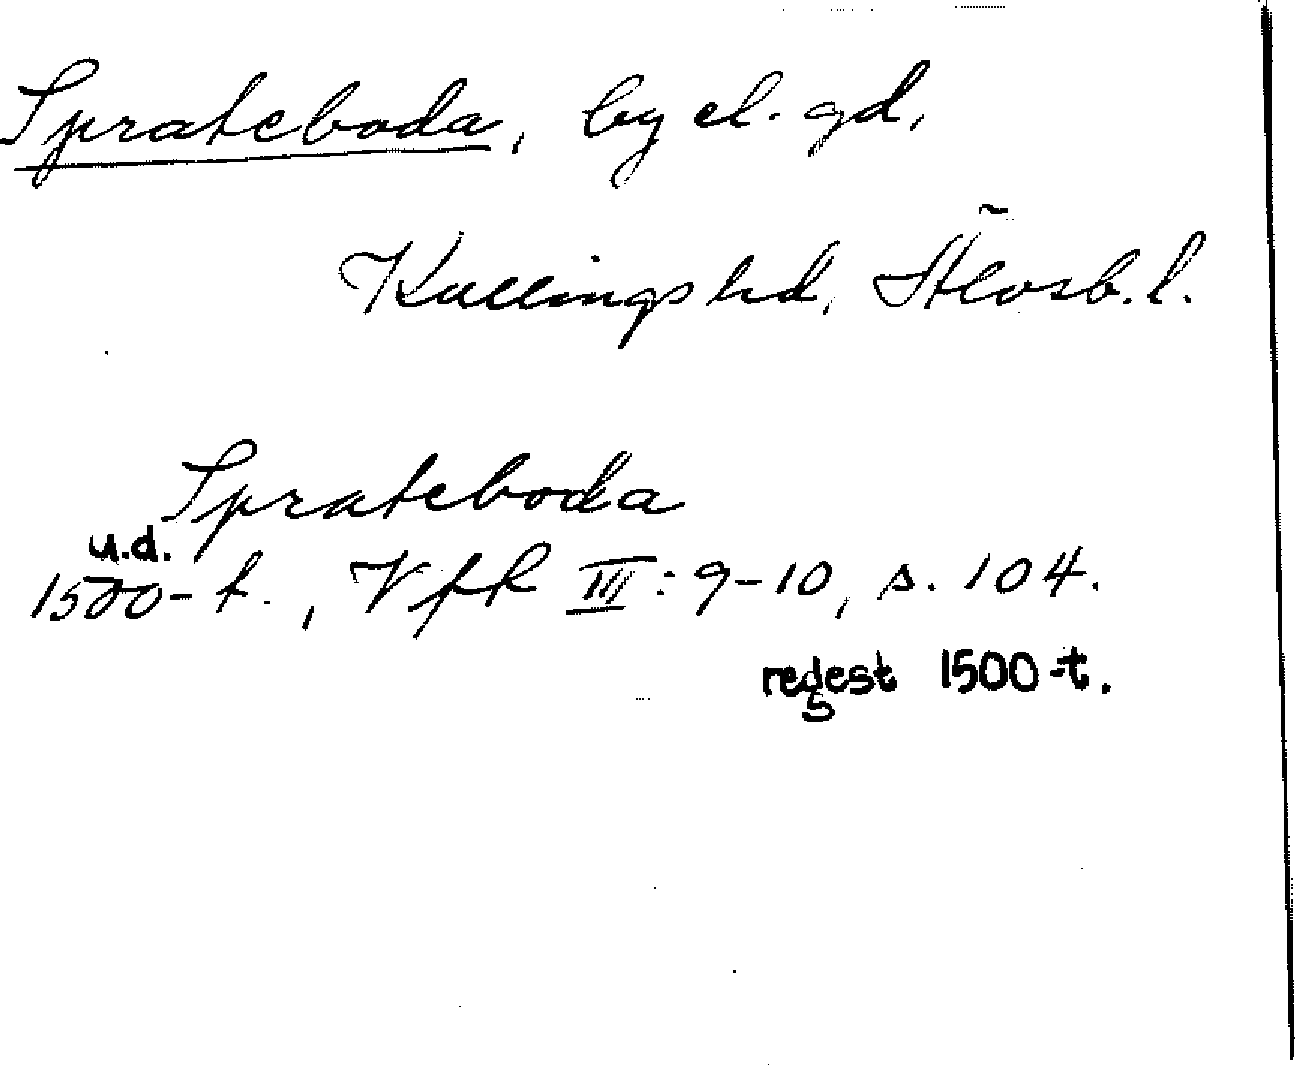 Sprateboda, by el. gd,
Kullings hd, Älvsb. l.
Sprateboda
u.d.
1500-t., Vfk III: 9-10, s. 104.
regest 1500-t.